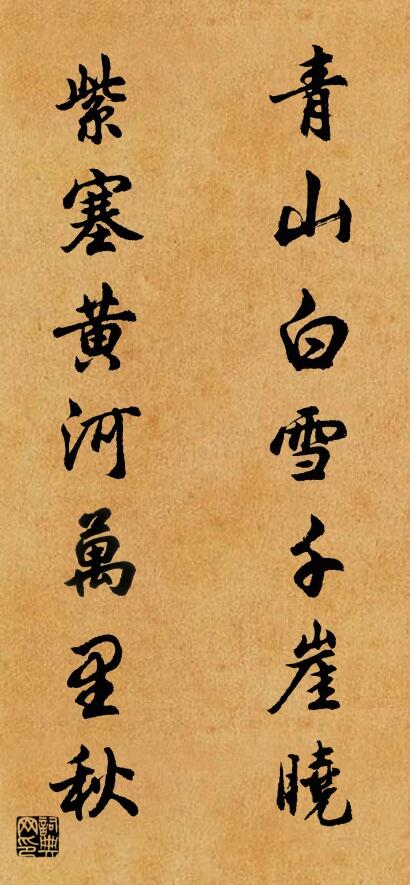 青山白雪千崖曉
紫塞黃河萬里秋
詞典網印